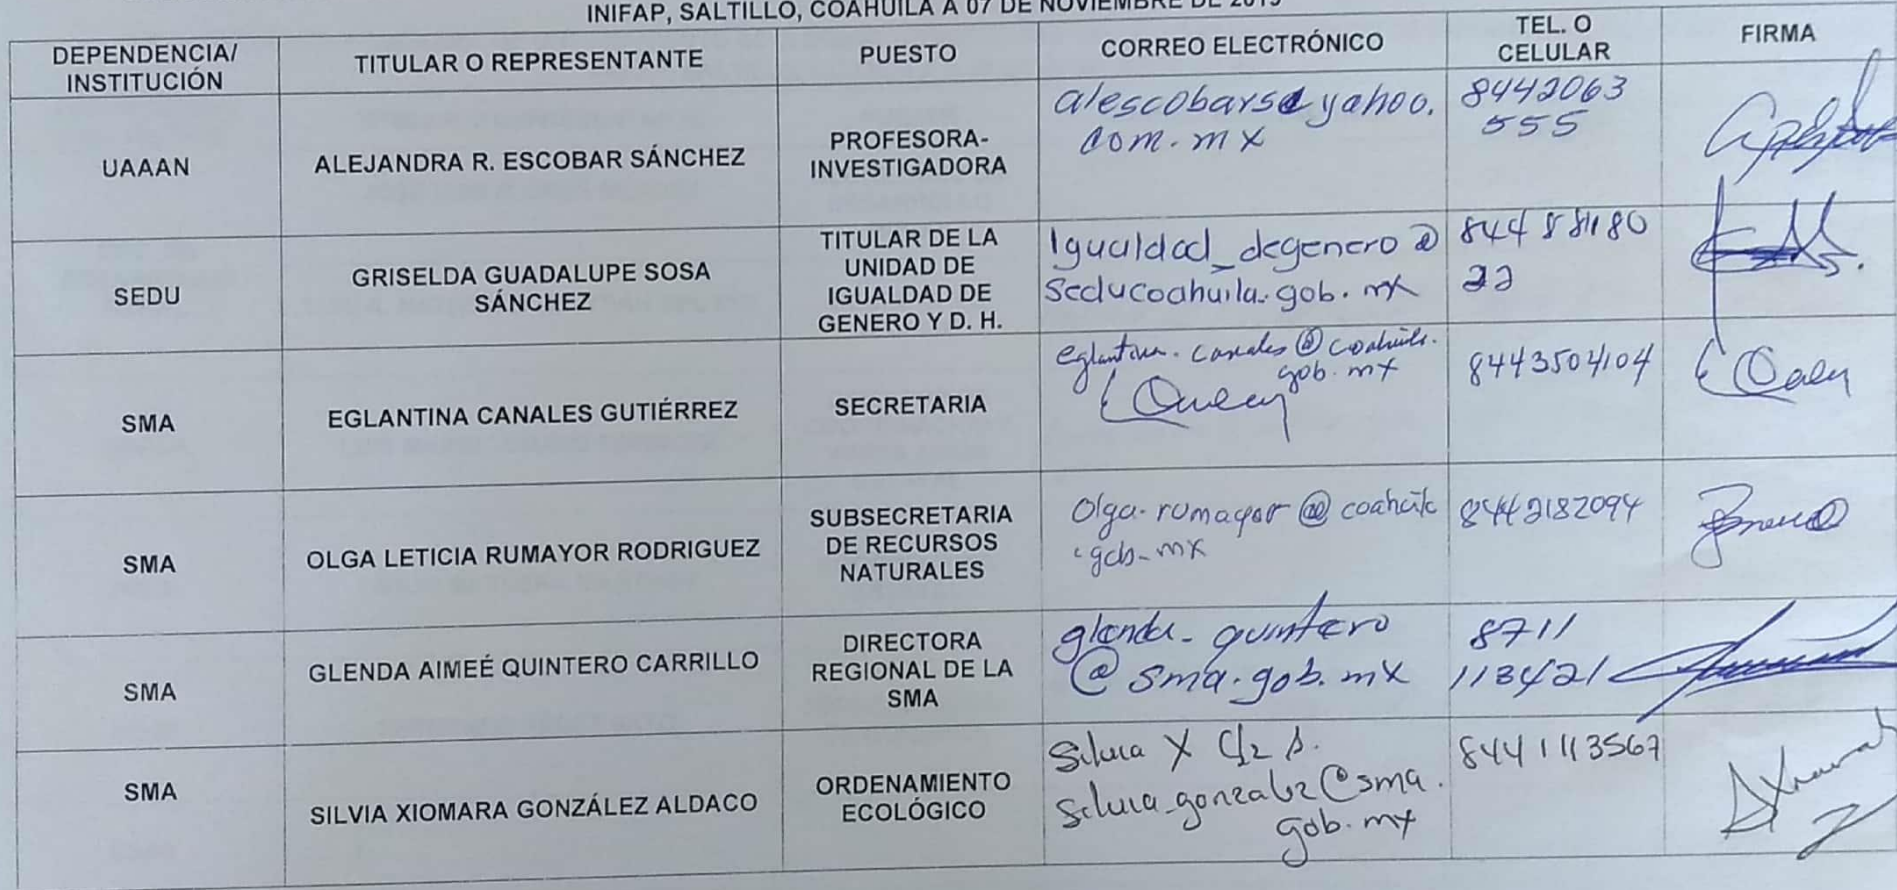 INIFAP, SALTILLO, COAHUILA A 07 DE NOVIEMBRE DE 2019
DEPENDENCIA/
INSTITUCIÓN
TITULAR O REPRESENTANTE
PUESTO
CORREO ELECTRÓNICO
TEL. O
CELULAR
FIRMA
UAAAN
ALEJANDRA R. ESCOBAR SÁNCHEZ
PROFESORA-
INVESTIGADORA
alescobars@yahoo.
com.mx
8442063
555
SEDU
GRISELDA GUADALUPE SOSA
SÁNCHEZ
TITULAR DE LA
UNIDAD DE
IGUALDAD DE
GENERO Y D. H.
Igualdad_degenero@
seducoahuila.gob.mx
844 8 81180
22
SMA
EGLANTINA CANALES GUTIÉRREZ
SECRETARIA
eglantina.canales@coahuila.
gob.mx
8443504104
SMA
OLGA LETICIA RUMAYOR RODRIGUEZ
SUBSECRETARIA
DE RECURSOS
NATURALES
olga.rumayor@coahuila
.gob.mx
8442182094
SMA
GLENDA AIMEÉ QUINTERO CARRILLO
DIRECTORA
REGIONAL DE LA
SMA
glenda_quintero
@sma.gob.mx
8711
113421
SMA
SILVIA XIOMARA GONZÁLEZ ALDACO
ORDENAMIENTO
ECOLÓGICO
Silvia X
silvia_gonzalez@sma.
gob.mx
8441113567